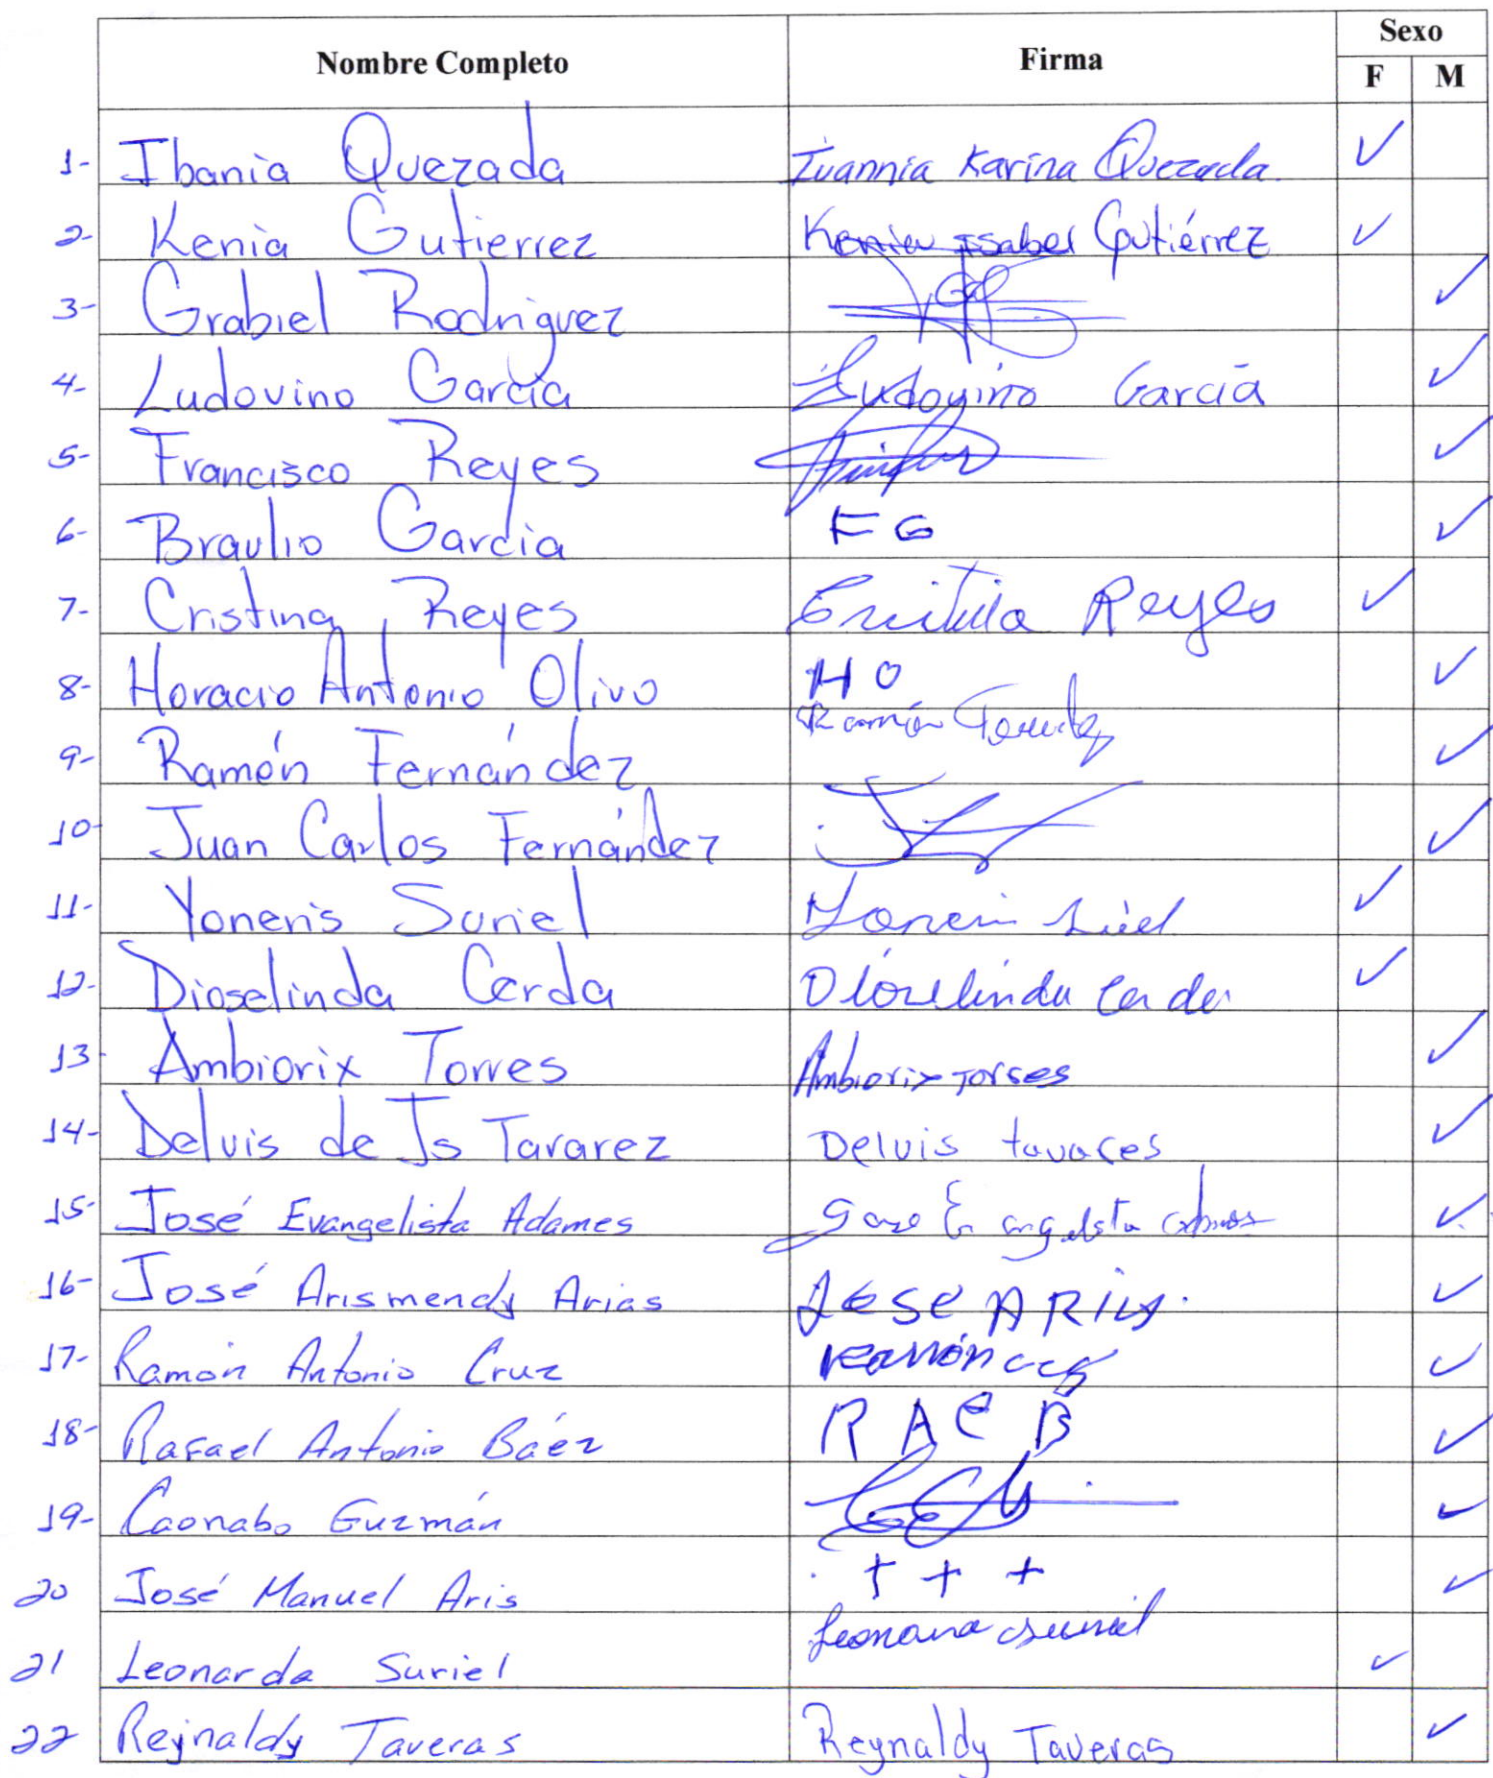 Nombre Completo Firma Sexo
F M
1- Ibania Quezada Ivannia Karina Quezada ✓
2- Kenia Gutierrez Kenia Isabel Gutiérrez ✓
3- Grabiel Rodriguez ✓
4- Ludovino García Ludovino García ✓
5- Francisco Reyes ✓
6- Braulio Garcia FG ✓
7- Cristina Reyes Reyes ✓
8- Horacio Antonio Olivo HO ✓
9- Ramón Fernández Ramón ✓
10- Juan Carlos Fernández ✓
11- Yoneris Suriel ✓
12- Dioselinda Cerda Dioselinda Cerda ✓
13- Ambiorix Torres Ambiorix Torres ✓
14- Delvis de Js Tavarez Delvis tavares ✓
15- José Evangelista Adames ✓
16- José Arismendy Arias José ARIAS ✓
17- Ramón Antonio Cruz Ramón ✓
18- Rafael Antonio Báez R A C B ✓
19- Caonabo Guzmán ✓
20 José Manuel Aris + + + ✓
21 Leonarda Suriel ✓
22 Reynaldy Taveras Reynaldy Taveras ✓